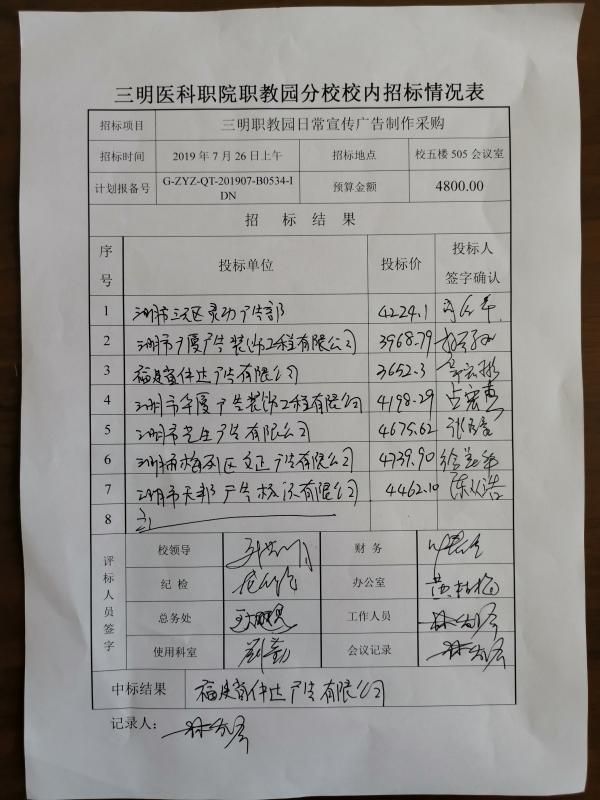 三明医科职院职教园分校校内招标情况表
招标项目 三明职教园日常宣传广告制作采购
招标时间 2019 年 7 月 26 日上午 招标地点 校五楼 505 会议室
计划报备号 G-ZYZ-QT-201907-B0534-I
DN 预算金额 4800.00
招 标 结 果
序号 投标单位 投标价 投标人
签字确认
1 三明市三元区灵动广告部 4224.1
2 三明市广厦广告装饰工程有限公司 3968.79
3 福建宣伟达广告有限公司 3652.3
4 三明市华厦广告装饰工程有限公司 4198.29
5 三明市艺佳广告有限公司 4675.62
6 三明市梅列区文正广告有限公司 4739.90
7 三明市天邦广告标识有限公司 4462.10
8
评标人员签字
校领导 财 务
纪检 办公室
总务处 工作人员
使用科室 刘勤 会议记录
中标结果 福建宣伟达广告有限公司
记录人：